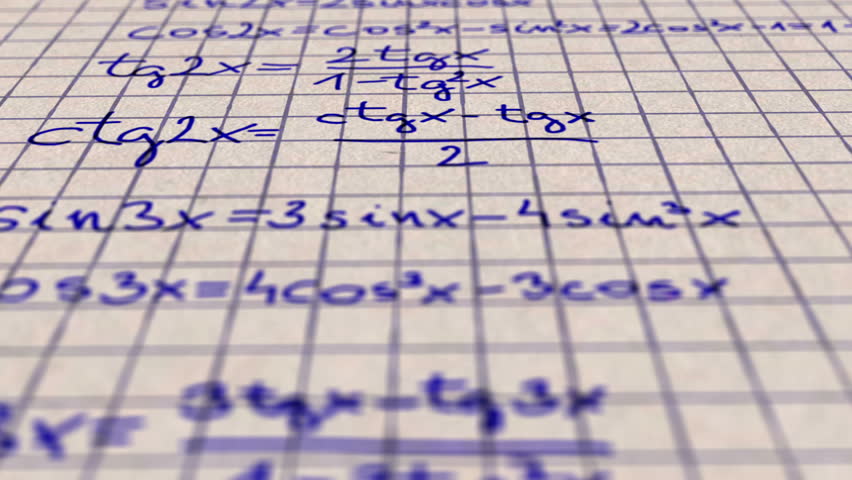 sin2x=2sinxcosx
cos2x=cos²x-sin²x=2cos²x-1=1-
tg2x= 2tgx
1-tg²x
ctg2x= ctgx-tgx
2
sin3x=3sinx-4sin³x
os3x=4cos³x-3cosx
3x= 3tgx-tg3x